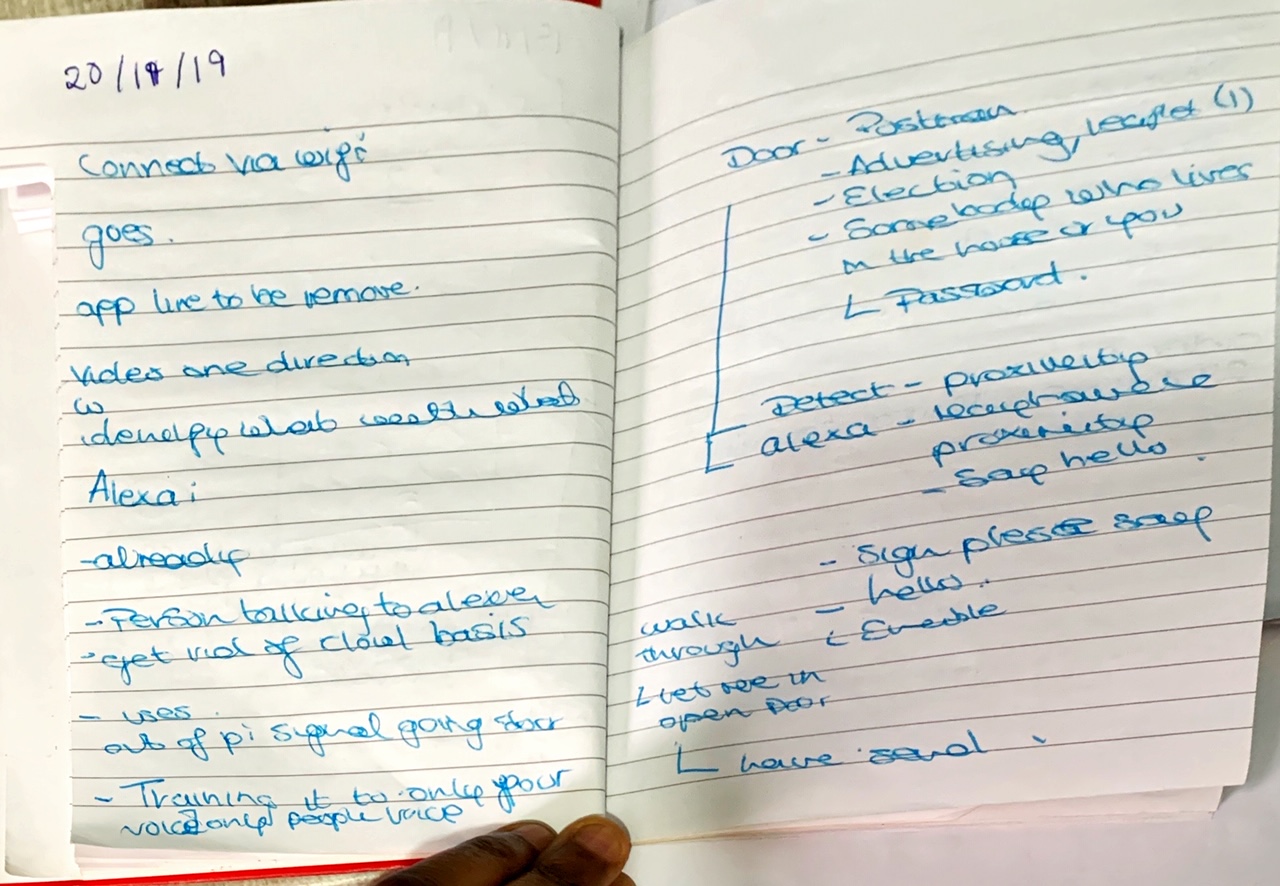 20/11/19
Connect via wifi
goes.
app line to be remove.
video one direction
identify what
Alexa:
-already
- Person talking to alexer
- get rid of cloud basis
- uses
out of pi signal going
- Training it to only your
voice only people voice
Door - Postman
- Advertising, leaflet (1)
- Election
- Somebody who lives
in the house or you
L Password.
Detect - proximity
alexa -
proximity
- Say hello.
- Sign please say
- hello..
walk
through L Enable
L let me in
open Door
L have send